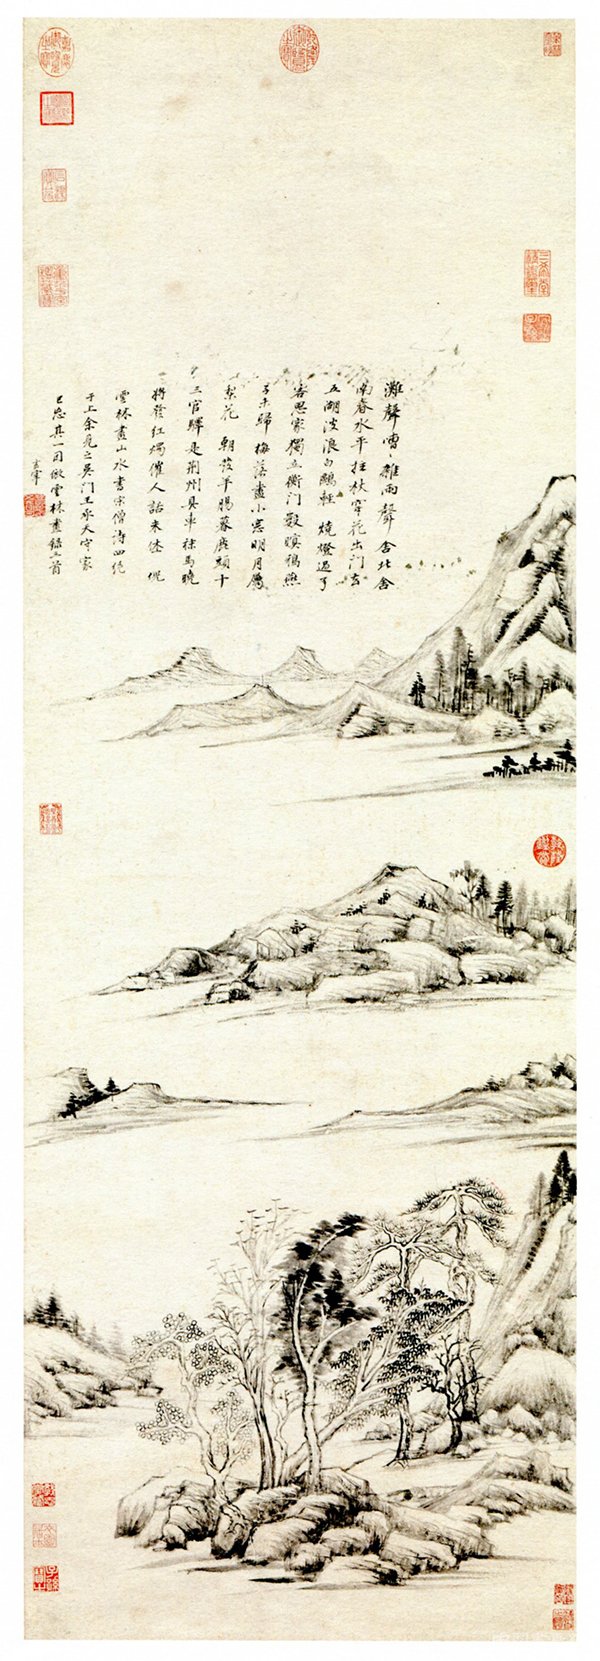 灘聲嘈〻雜雨聲 舍北舍
南春水平拄杖穿花出門去
五湖波浪白鷗輕 燒燈過了
客思家獨立衡門數暝鴉燕
子未歸梅落盡小窓明月屬
梨花 朝發平腸暮鹿頭十
三官驛是荊州具車秣馬曉
將發紅燭催人話未休 倪
雲林畫山水書宋僧詩四絕
于上余見之吳門王承天守家
已忘其一因倣雲林畫錄三首
玄宰